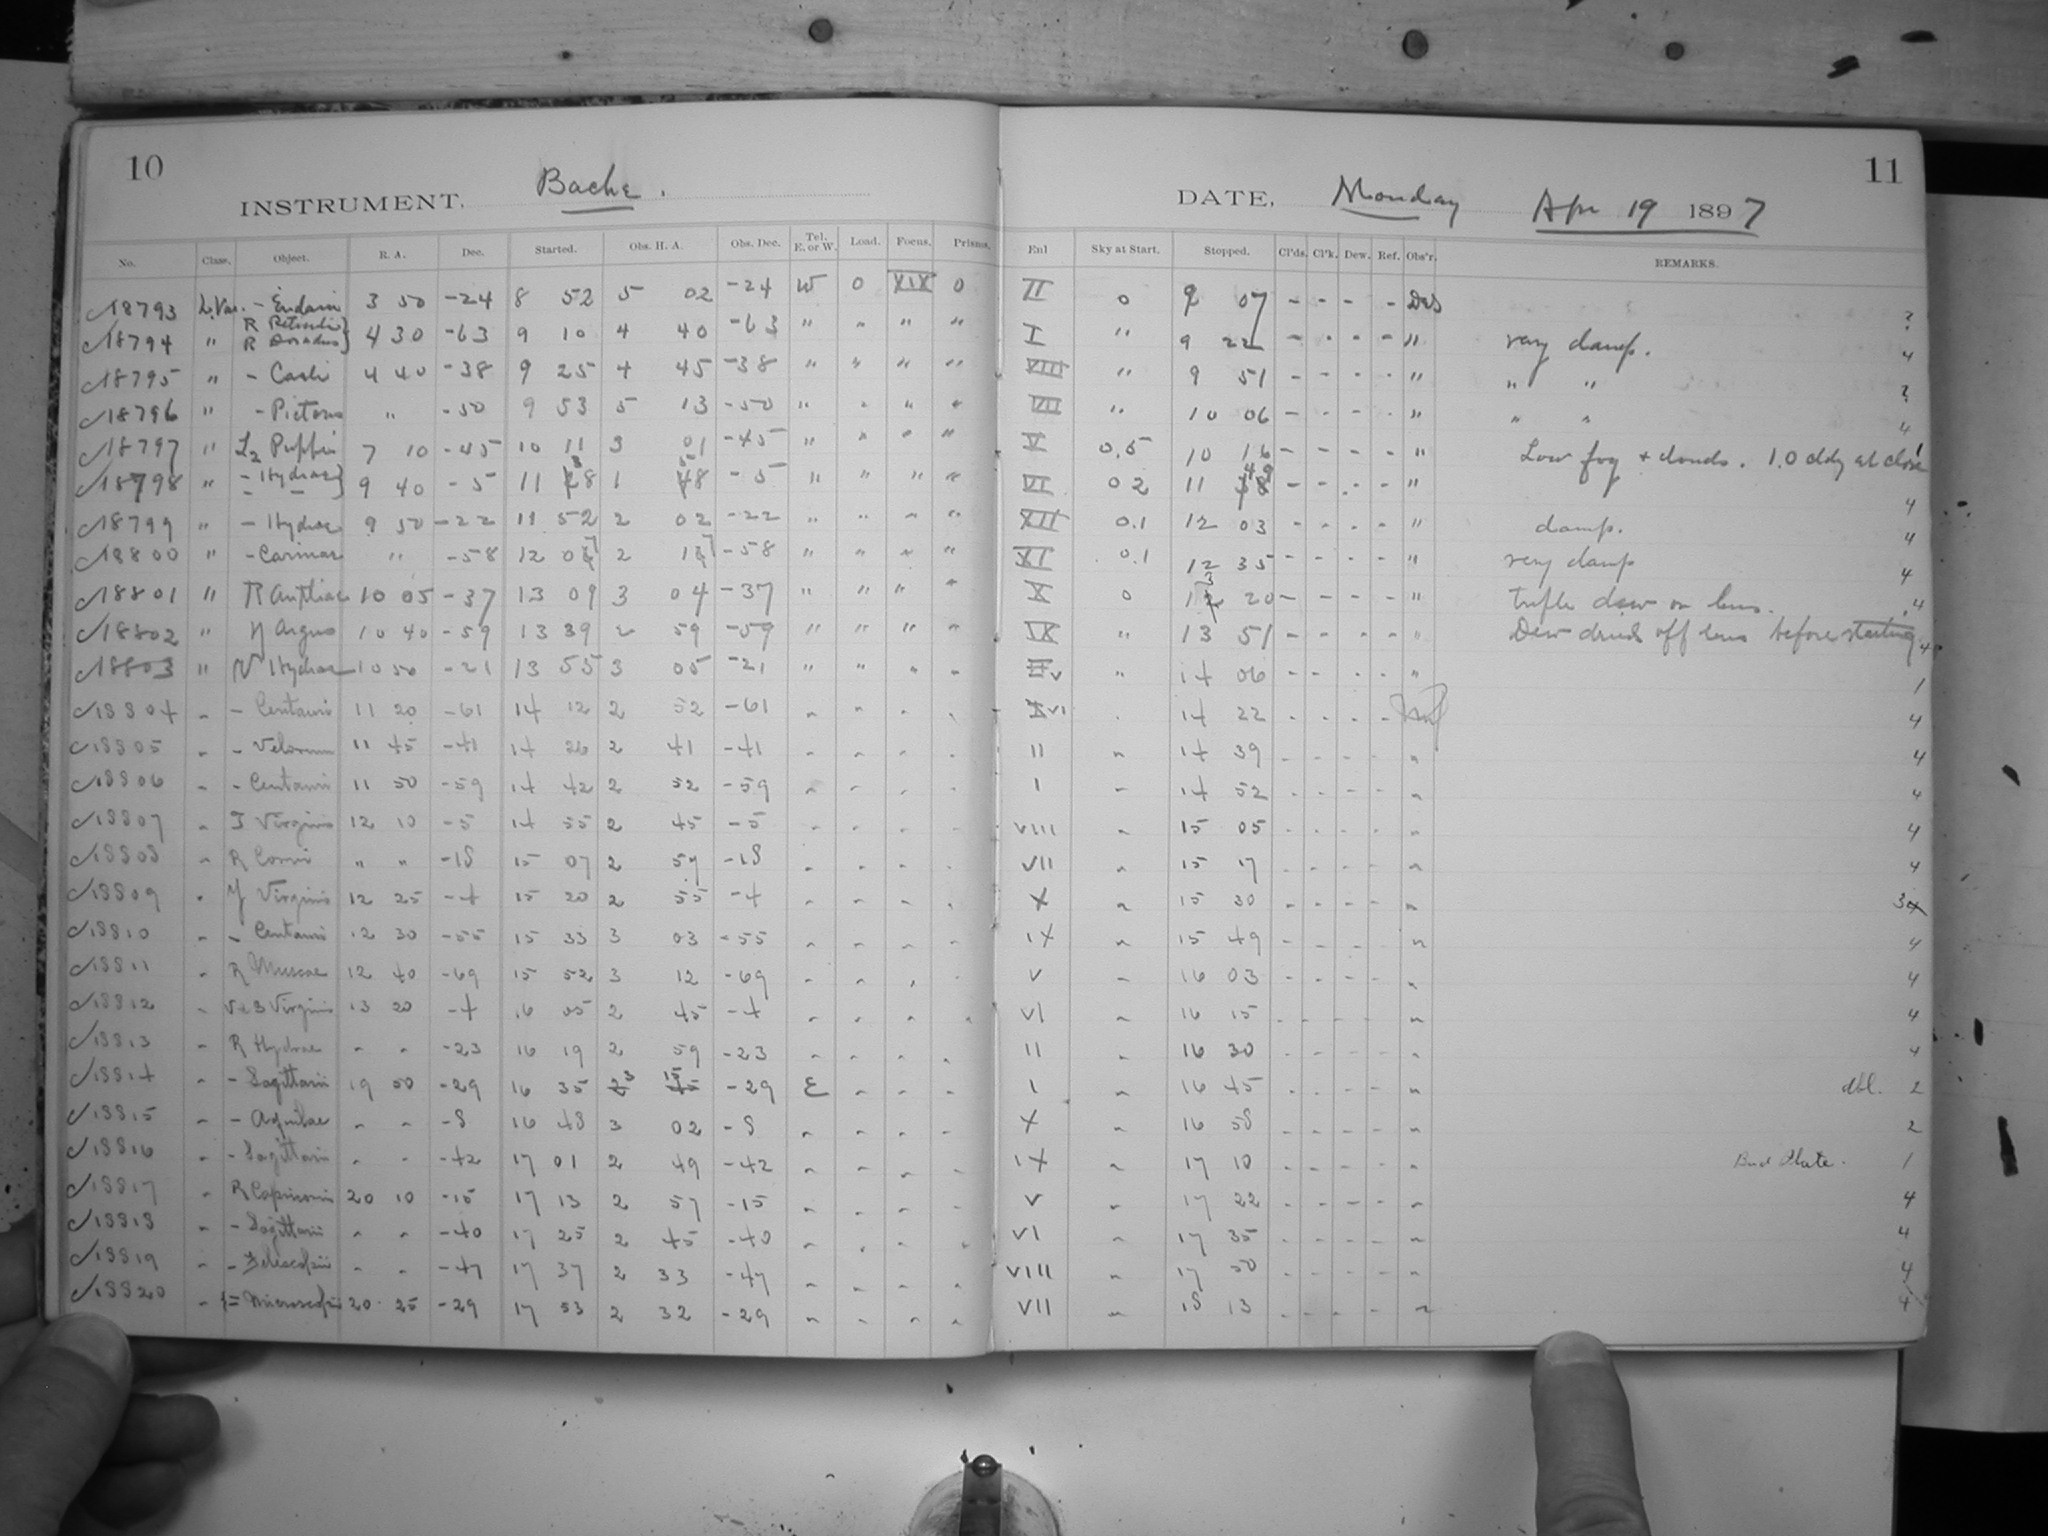 10
INSTRUMENT. Bache.
No. Class. Object. R. A. Dec. Started. Obs. H. A. Obs. Dec. Tel. E. or W. Load. Focus. Prisms.
18793 L.Var. - Eridani 3 50 -24 8 52 5 02 -24 W 0 XIX 0
18794 " R Reticuli R Doradus } 4 30 -63 9 10 4 40 -63 " " " "
18795 " - Caeli 4 40 -38 9 25 4 45 -38 " " " "
18796 " - Pictoris " -50 9 53 5 13 -50 " " " "
18797 " L2 Puppis 7 10 -45 10 11 3 01 -45 " " " "
18798 " - Hydrae } 9 40 -5 11 38 1 58 -5 " " " "
18799 " - Hydrae 9 50 -22 11 52 2 02 -22 " " " "
18800 " - Carinae " -58 12 07 2 17 -58 " " " "
18801 " R Antliae 10 05 -37 13 09 3 04 -37 " " " "
18802 " η Argus 10 40 -59 13 39 2 59 -59 " " " "
18803 " V Hydrae 10 50 -21 13 55 3 05 -21 " " " "
18804 " - Centauri 11 20 -61 14 12 2 52 -61 " " " "
18805 " - Velorum 11 45 -41 14 26 2 41 -41 " " " "
18806 " - Centauri 11 50 -59 14 42 2 52 -59 " " " "
18807 " T Virginis 12 10 -5 14 55 2 45 -5 " " " "
18808 " R Corvi " " -18 15 07 2 57 -18 " " " "
18809 " Y Virginis 12 25 -4 15 20 2 55 -4 " " " "
18810 " - Centauri 12 30 -55 15 33 3 03 -55 " " " "
18811 " R Muscae 12 40 -69 15 52 3 12 -69 " " " "
18812 " V & S Virginis 13 20 -4 16 05 2 45 -4 " " " "
18813 " R Hydrae " " -23 16 19 2 59 -23 " " " "
18814 " - Sagittarii 19 50 -29 16 35 3 15 -29 E " " "
18815 " - Aquilae " " -8 16 48 3 02 -8 " " " "
18816 " - Sagittarii " " -42 17 01 2 49 -42 " " " "
18817 " R Capricorni 20 10 -15 17 13 2 57 -15 " " " "
18818 " - Sagittarii " " -40 17 25 2 45 -40 " " " "
18819 " - Telescopii " " -47 17 37 2 33 -47 " " " "
18820 " = Microscopii 20 25 -29 17 53 2 32 -29 " " " "
11
DATE, Monday Apr 19 1897
Enl Sky at Start. Stopped. Cl'ds. Cl'k. Dew. Ref. Obs'r. REMARKS.
II 0 9 07 - - - - ?
I " 9 22 - - - - " very damp. 4
VIII " 9 51 - - - - " " " ?
VII " 10 06 - - - - " " " 4
V 0.5 10 16 - - - - " Low fog & clouds. 1.0 cldy at close 1
VI 0 2 11 49 - - - - " 4
XII 0.1 12 03 - - - - " damp. 4
XI 0.1 12 35 - - - - " very damp 4
X 0 13 20 - - - - " trifle dew on lens. 4
IX " 13 51 - - - - " Dew dried off lens before starting 4
V " 14 06 - - - - " 1
VI 14 22 - - - - 4
II " 14 39 - - - - " 4
I " 14 52 - - - - " 4
VIII " 15 05 - - - - " 4
VII " 15 17 - - - - " 4
X " 15 30 - - - - " 3
IX " 15 49 - - - - " 4
V " 16 03 - - - - " 4
VI " 16 15 - - - - " 4
II " 16 30 - - - - " 4
I " 16 45 - - - - " dbl. 2
X " 16 58 - - - - " 2
IX " 17 10 - - - - " Bad Plate. 1
V " 17 22 - - - - " 4
VI " 17 35 - - - - " 4
VIII " 17 50 - - - - " 4
VII " 18 13 - - - - " 4